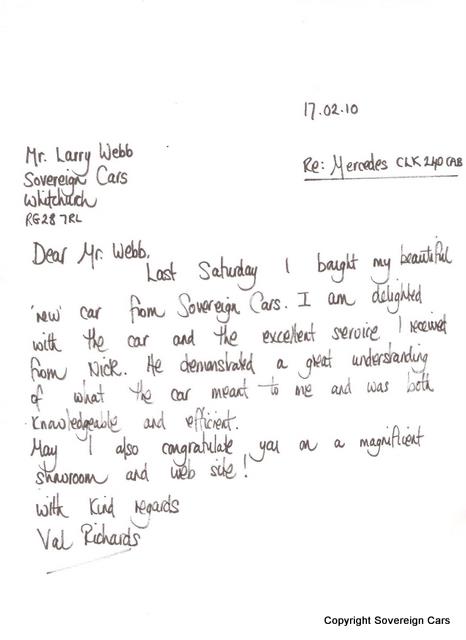 17.02.10
Mr. Larry Webb
Sovereign Cars
Whitchurch
RG28 7RL
Re: Mercedes CLK 240 CAB
Dear Mr. Webb,
Last Saturday I bought my beautiful
'new' car from Sovereign Cars. I am delighted
with the car and the excellent service I received
from Nick. He demonstrated a great understanding
of what the car meant to me and was both
knowledgeable and efficient.
May I also congratulate you on a magnificent
showroom and web site!
With kind regards
Val Richards
Copyright Sovereign Cars